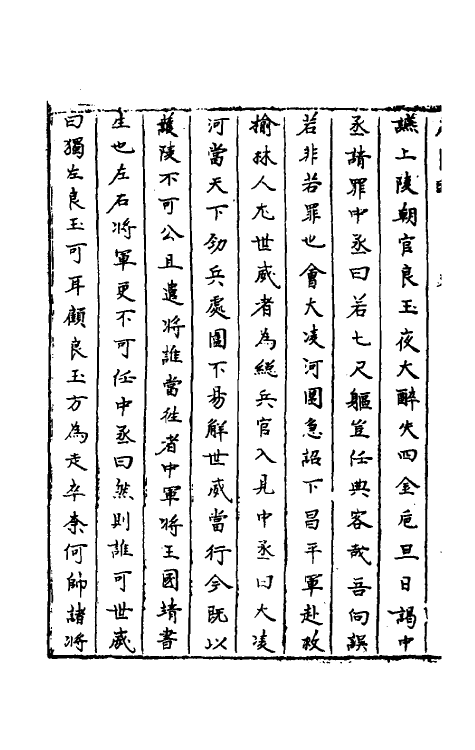 讌上陵朝官良玉夜大醉失四金卮旦日謁中
丞請罪中丞曰若七尺軀豈任典客哉吾向誤
若非若罪也會大凌河圍急詔下昌平軍赴救
榆林人尤世威者為総兵官入見中丞曰大凌
河當天下劲兵處圍不易解世威當行今既以
護陵不可公且遣將誰當徃者中軍將王國靖書
生也左右將軍更不可任中丞曰然則誰可世威
曰獨左良玉可耳顧良玉方為走卒柰何帥諸將